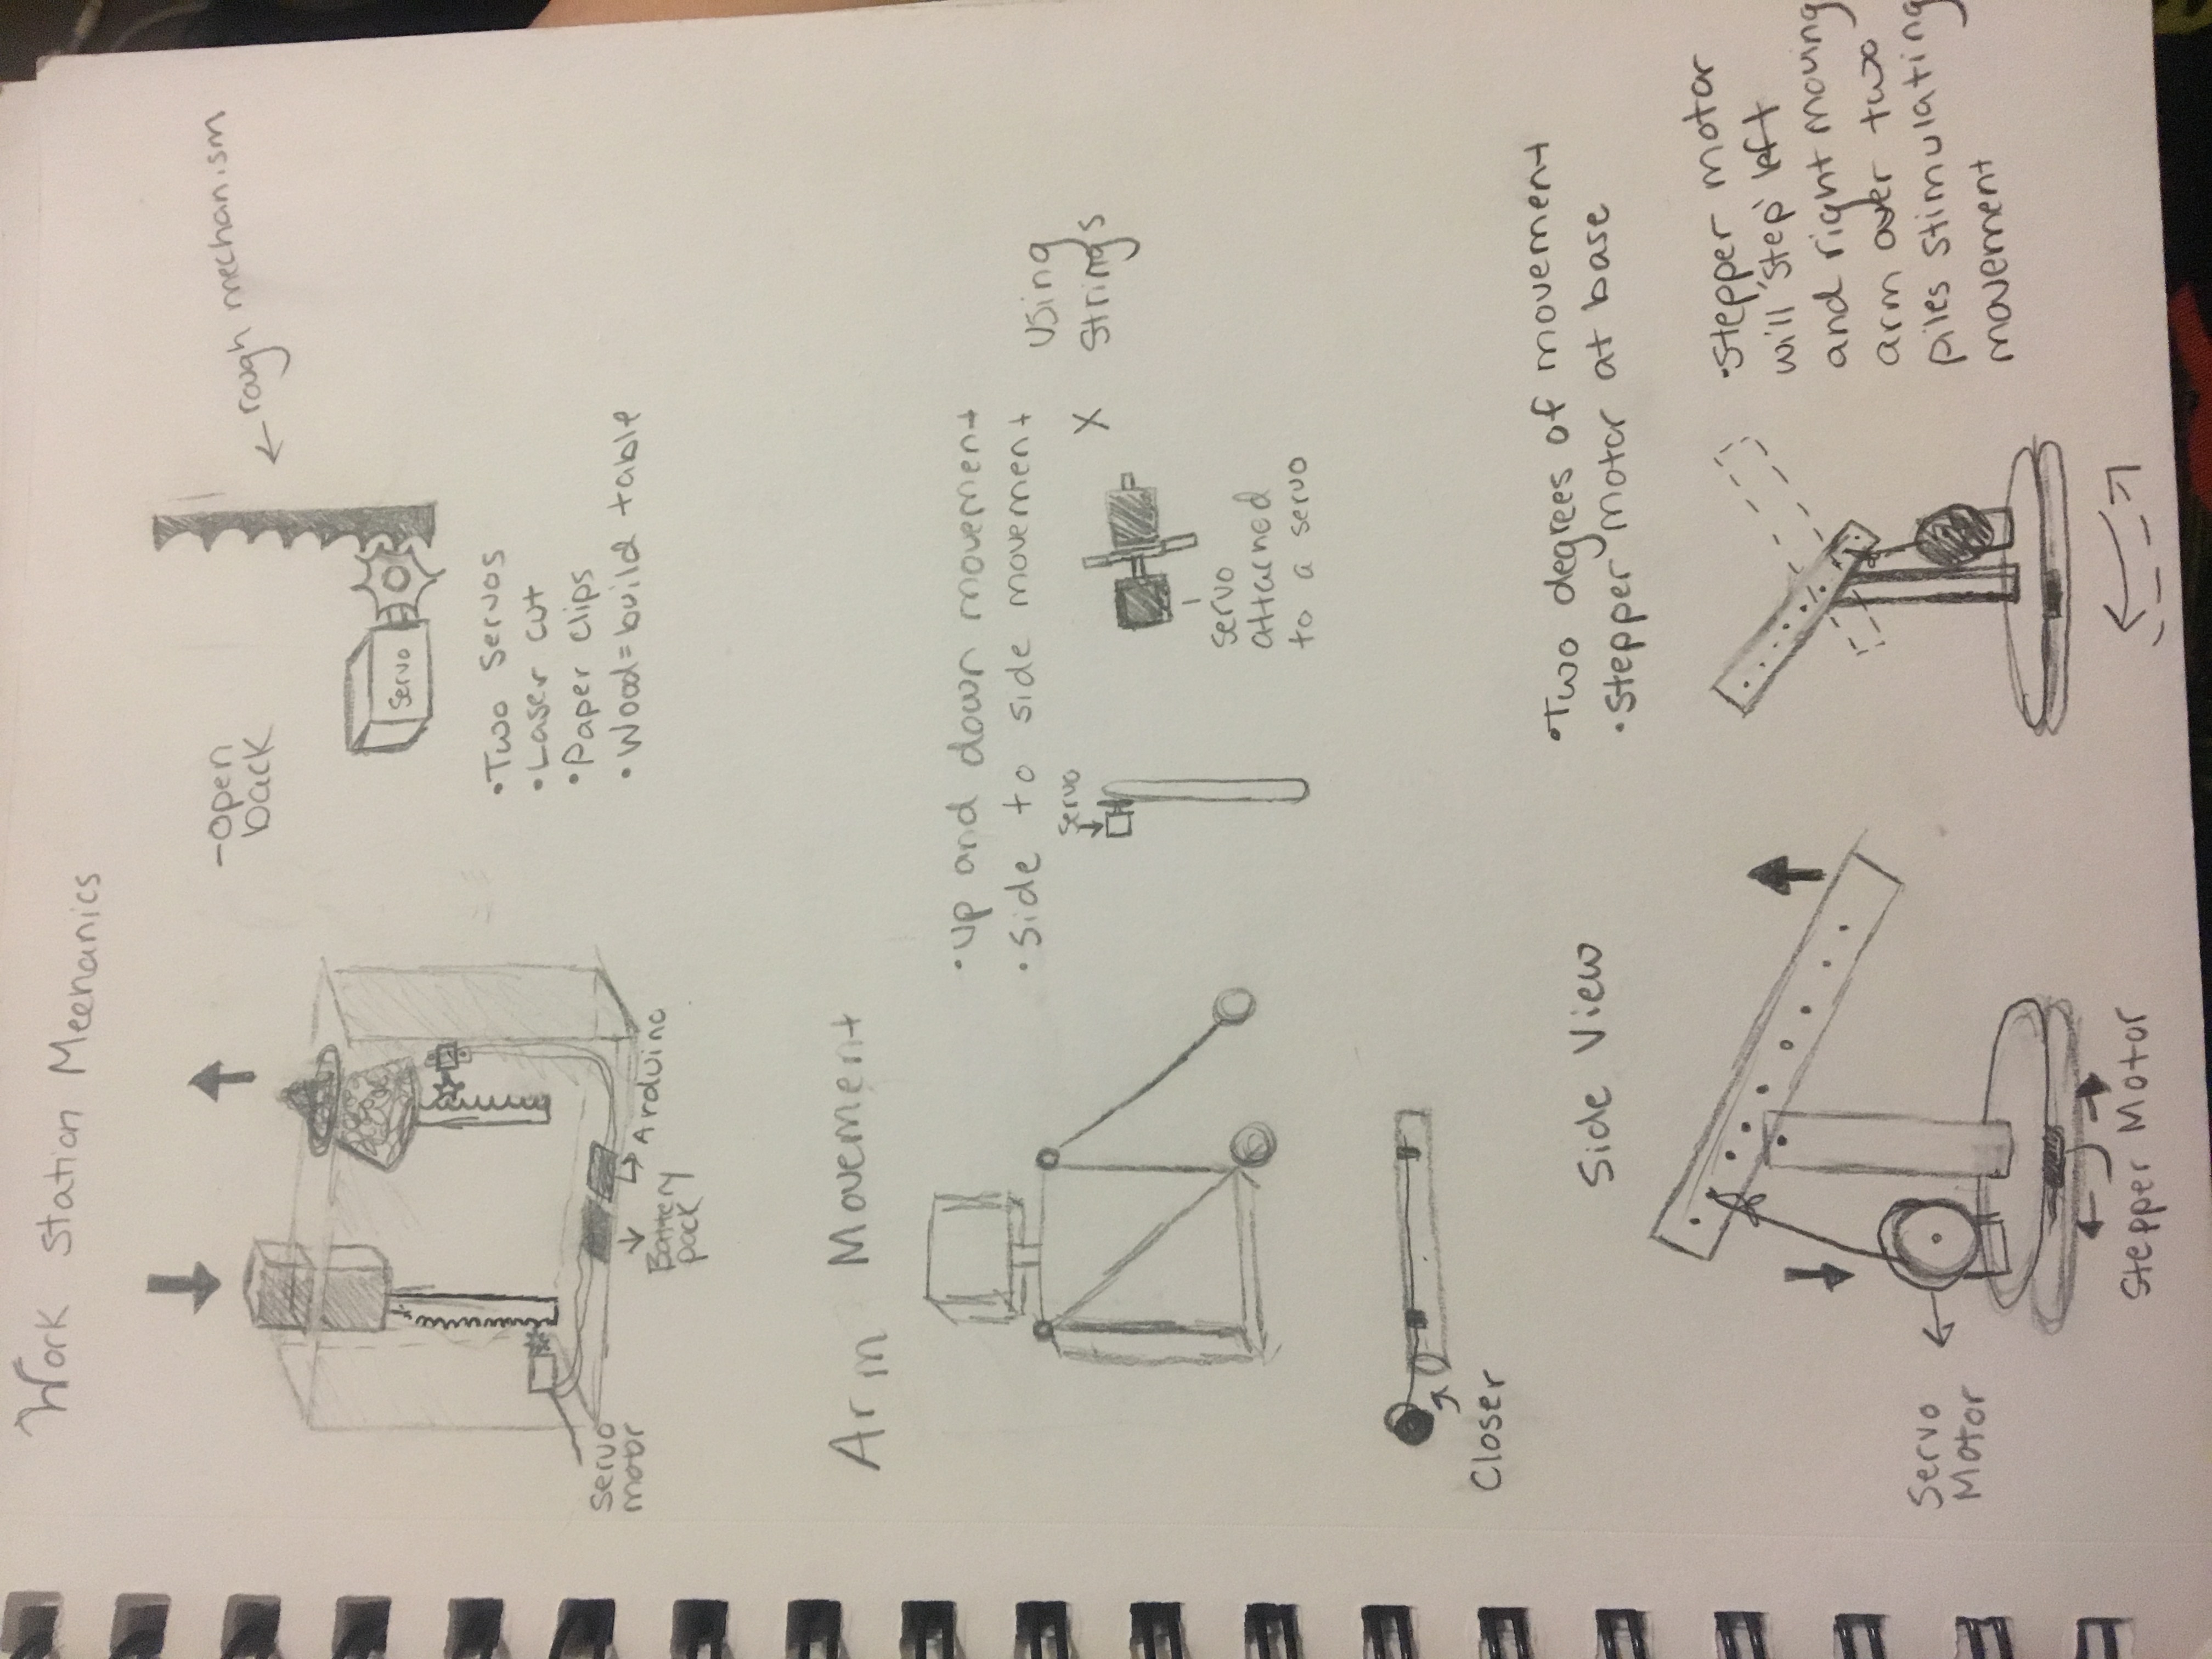 Work Station Meehanics
-open
back
← rough mechanism
servo
• Two servos
• Laser cut
• Paper clips
• Wood = build table
Servo
motor
Battery
pack
Arduino
Arm Movement
• up and down movement
• side to side movement
servo
X
Using
strings
servo
attatched
to a servo
Closer
Side View
Servo
Motor
Stepper Motor
• Two degrees of movement
• stepper motor at base
• stepper motor
will "step" left
and right moving
arm over two
piles stimulating
movement